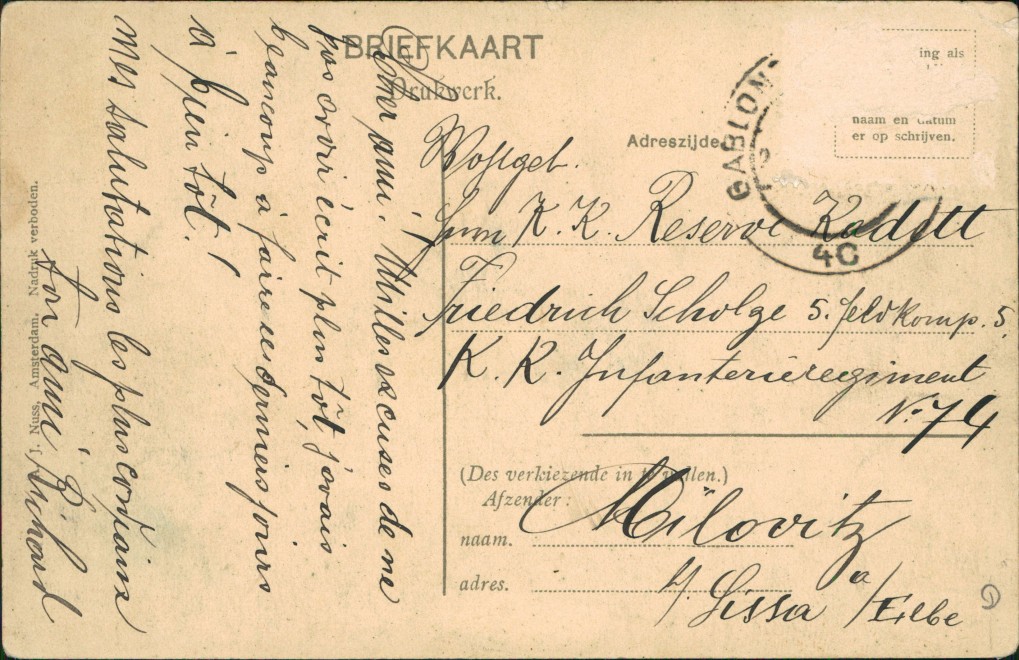 BRIEFKAART
Drukwerk.
Adreszijde
ing als
naam en datum
er op schrijven.
GABLON
4C
Cher ami! Milles excuses de ne
pas avoir écrit plus tôt, j'avais
beaucoup à faire ces derniers jours
à bien tôt!
Mes salutations les plus cordiaux
ton ami Richard
J. Nuss, Amsterdam, Nadruk verboden.
Wohlgeb.
Herrn K. K. Reserve Kadett
Friedrich Scholze 5. Feldkomp. 5.
K. K. Infanterieregiment
No. 74
(Des verkiezende in te vullen.)
Afzender:
naam.
adres.
Milovitz
Lissa a/Elbe